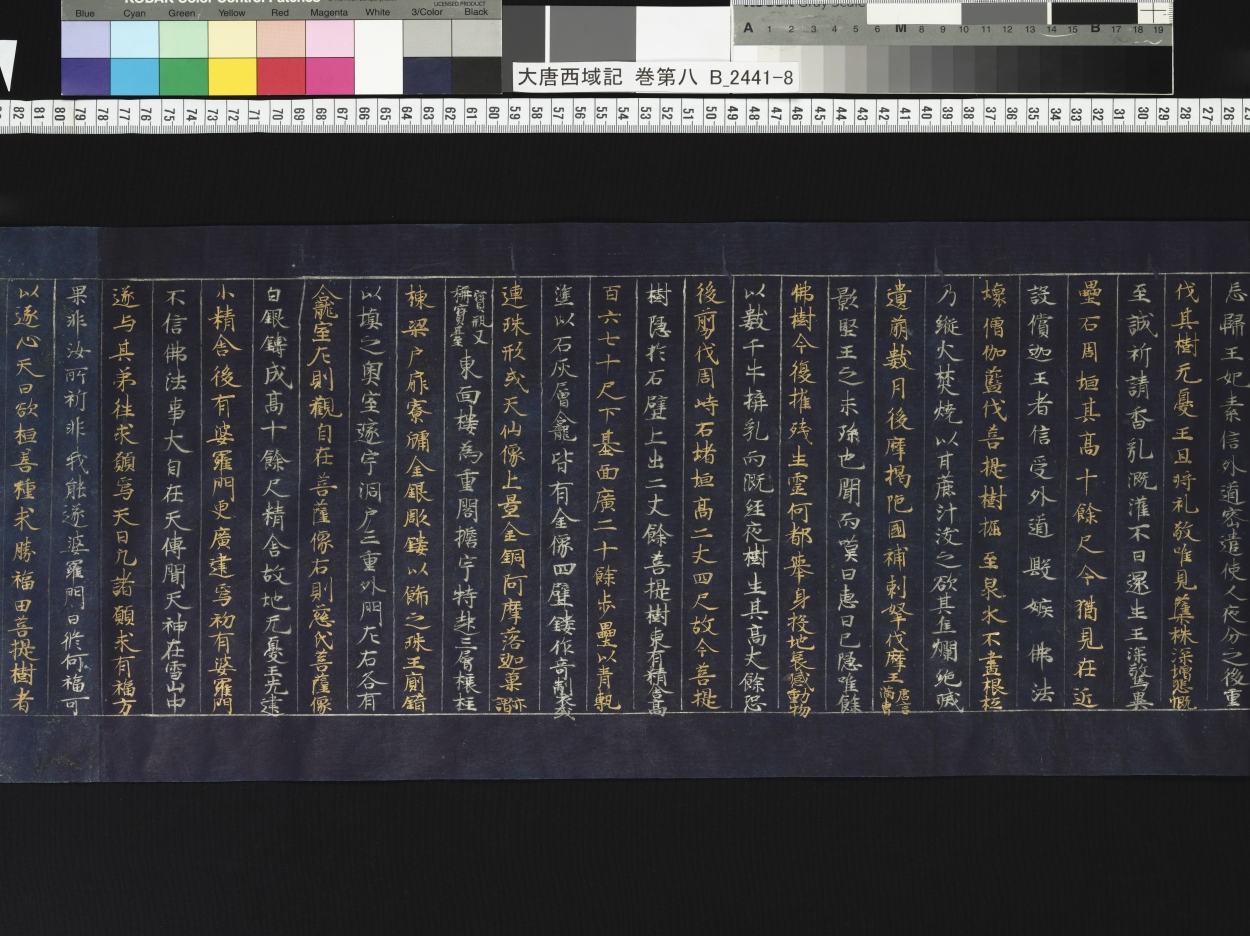 KODAK Color Control Patches
LICENSED PRODUCT
Blue Cyan Green Yellow Red Magenta White 3/Color Black
A 1 2 3 4 5 6 M 8 9 10 11 12 13 14 15 B 17 18 19
大唐西域記 巻第八 B_2441-8
82 81 80 79 78 77 76 75 74 73 72 71 70 69 68 67 66 65 64 63 62 61 60 59 58 57 56 55 54 53 52 51 50 49 48 47 46 45 44 43 42 41 40 39 38 37 36 35 34 33 32 31 30 29 28 27 26
忘歸王妃素信外道密遣使人夜分之後重
伐其樹无憂王旦将礼敬唯見蘗株深増悲慨
至誠祈請香乳溉灌不日還生王深敬異
壘石周垣其高十餘尺今猶見在近
設償迦王者信受外道毀嫉佛法
壊僧伽藍伐菩提樹掘至泉水不盡根柢
乃縦火焚焼以甘蔗汁淩之欲其焦爛絶滅
遺萠數月後摩掲陁國補剌拏伐摩王唐言滿胄
影堅王之末孫也聞而嘆曰恵日已隱唯餘
佛樹今復摧残生霊何都舉身投地哀感動物
以數千牛搆乳而溉經夜樹生其高丈餘恐
後剪伐周峙石堵垣髙二丈四尺故今菩提
樹隱於石壁上出二丈餘菩提樹東有精舎高
百六七十尺下基面廣二十餘歩壘以青甎
塗以石灰層龕皆有金像四壁鏤作奇製或
連珠形或天仙像上置金銅阿摩落迦菓亦謂
寳瓶又稱寳臺東面接為重閣擔宇特起三層榱柱
棟梁戸扉寮牖金銀彫鏤以飾之珠玉厠錯
以填之奥室邃宇洞戸三重外門左右各有
龕室左則觀自在菩薩像右則慈氏菩薩像
白銀鑄成髙十餘尺精舎故地无憂王先建
小精舎後有婆羅門更廣建焉初有婆羅門
不信佛法事大自在天傳聞天神在雪山中
遂与其弟往求願焉天曰凡諸願求有福方
果非汝所祈非我能遂婆羅門曰修何福可
以遂心天曰欲植善種求勝福田菩提樹者